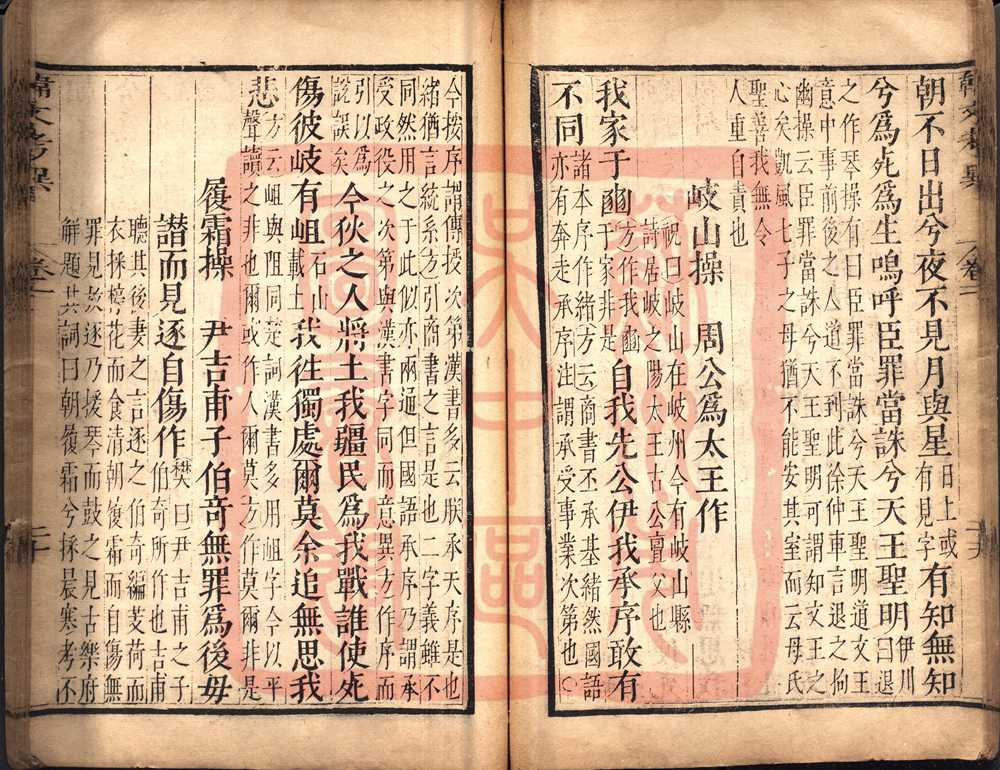 韓文考異 卷一
朝不日出兮夜不見月與星
日上或
有見字
有知無知
兮爲死爲生嗚呼臣罪當誅兮天王聖明
伊川
曰退
之作琴操有曰臣罪當誅兮天王聖明道文王
意中事前後之人道不到此徐仲車言退之拘
幽操云臣罪當誅兮天王聖明可謂知文王之
心矣凱風七子之母猶不能安其室而云母氏
聖善我無令
人重自責也
岐山操 周公爲太王作
祝曰岐山在岐州今有岐山縣
詩居岐之陽太王古公亶父也
我家于豳
方作我豳
于家非是
自我先公伊我承序敢有
不同
諸本序作緒方云商書丕承基緒然國語
亦有奔走承序注謂承受事業次第也○
今按序謂傳授次第漢書多云朕承天序是也
緒猶言統系方引商書之言是也二字義雖不
同然用之于此似亦兩通但國語承序乃謂承
受政役之次第與漢書字同而意異方作序而
引以爲
說誤矣
今狄之人將土我疆民爲我戰誰使死
傷彼岐有岨
石山
載土
我徃獨處爾莫余追無思我
悲
方云岨與阻同楚詞漢書多用岨字今以平
聲讀之非也爾或作人爾莫方作莫爾非是
履霜操 尹吉甫子伯奇無罪爲後母
譖而見逐自傷作
樊曰尹吉甫之子
伯奇所作也吉甫
聽其後妻之言逐之伯奇編芰荷而
衣採楟花而食清朝履霜而自傷無
罪見放逐乃援琴而鼓之見古樂府
解題其詞曰朝履霜兮採晨寒考不
韓文考異 卷一 二十